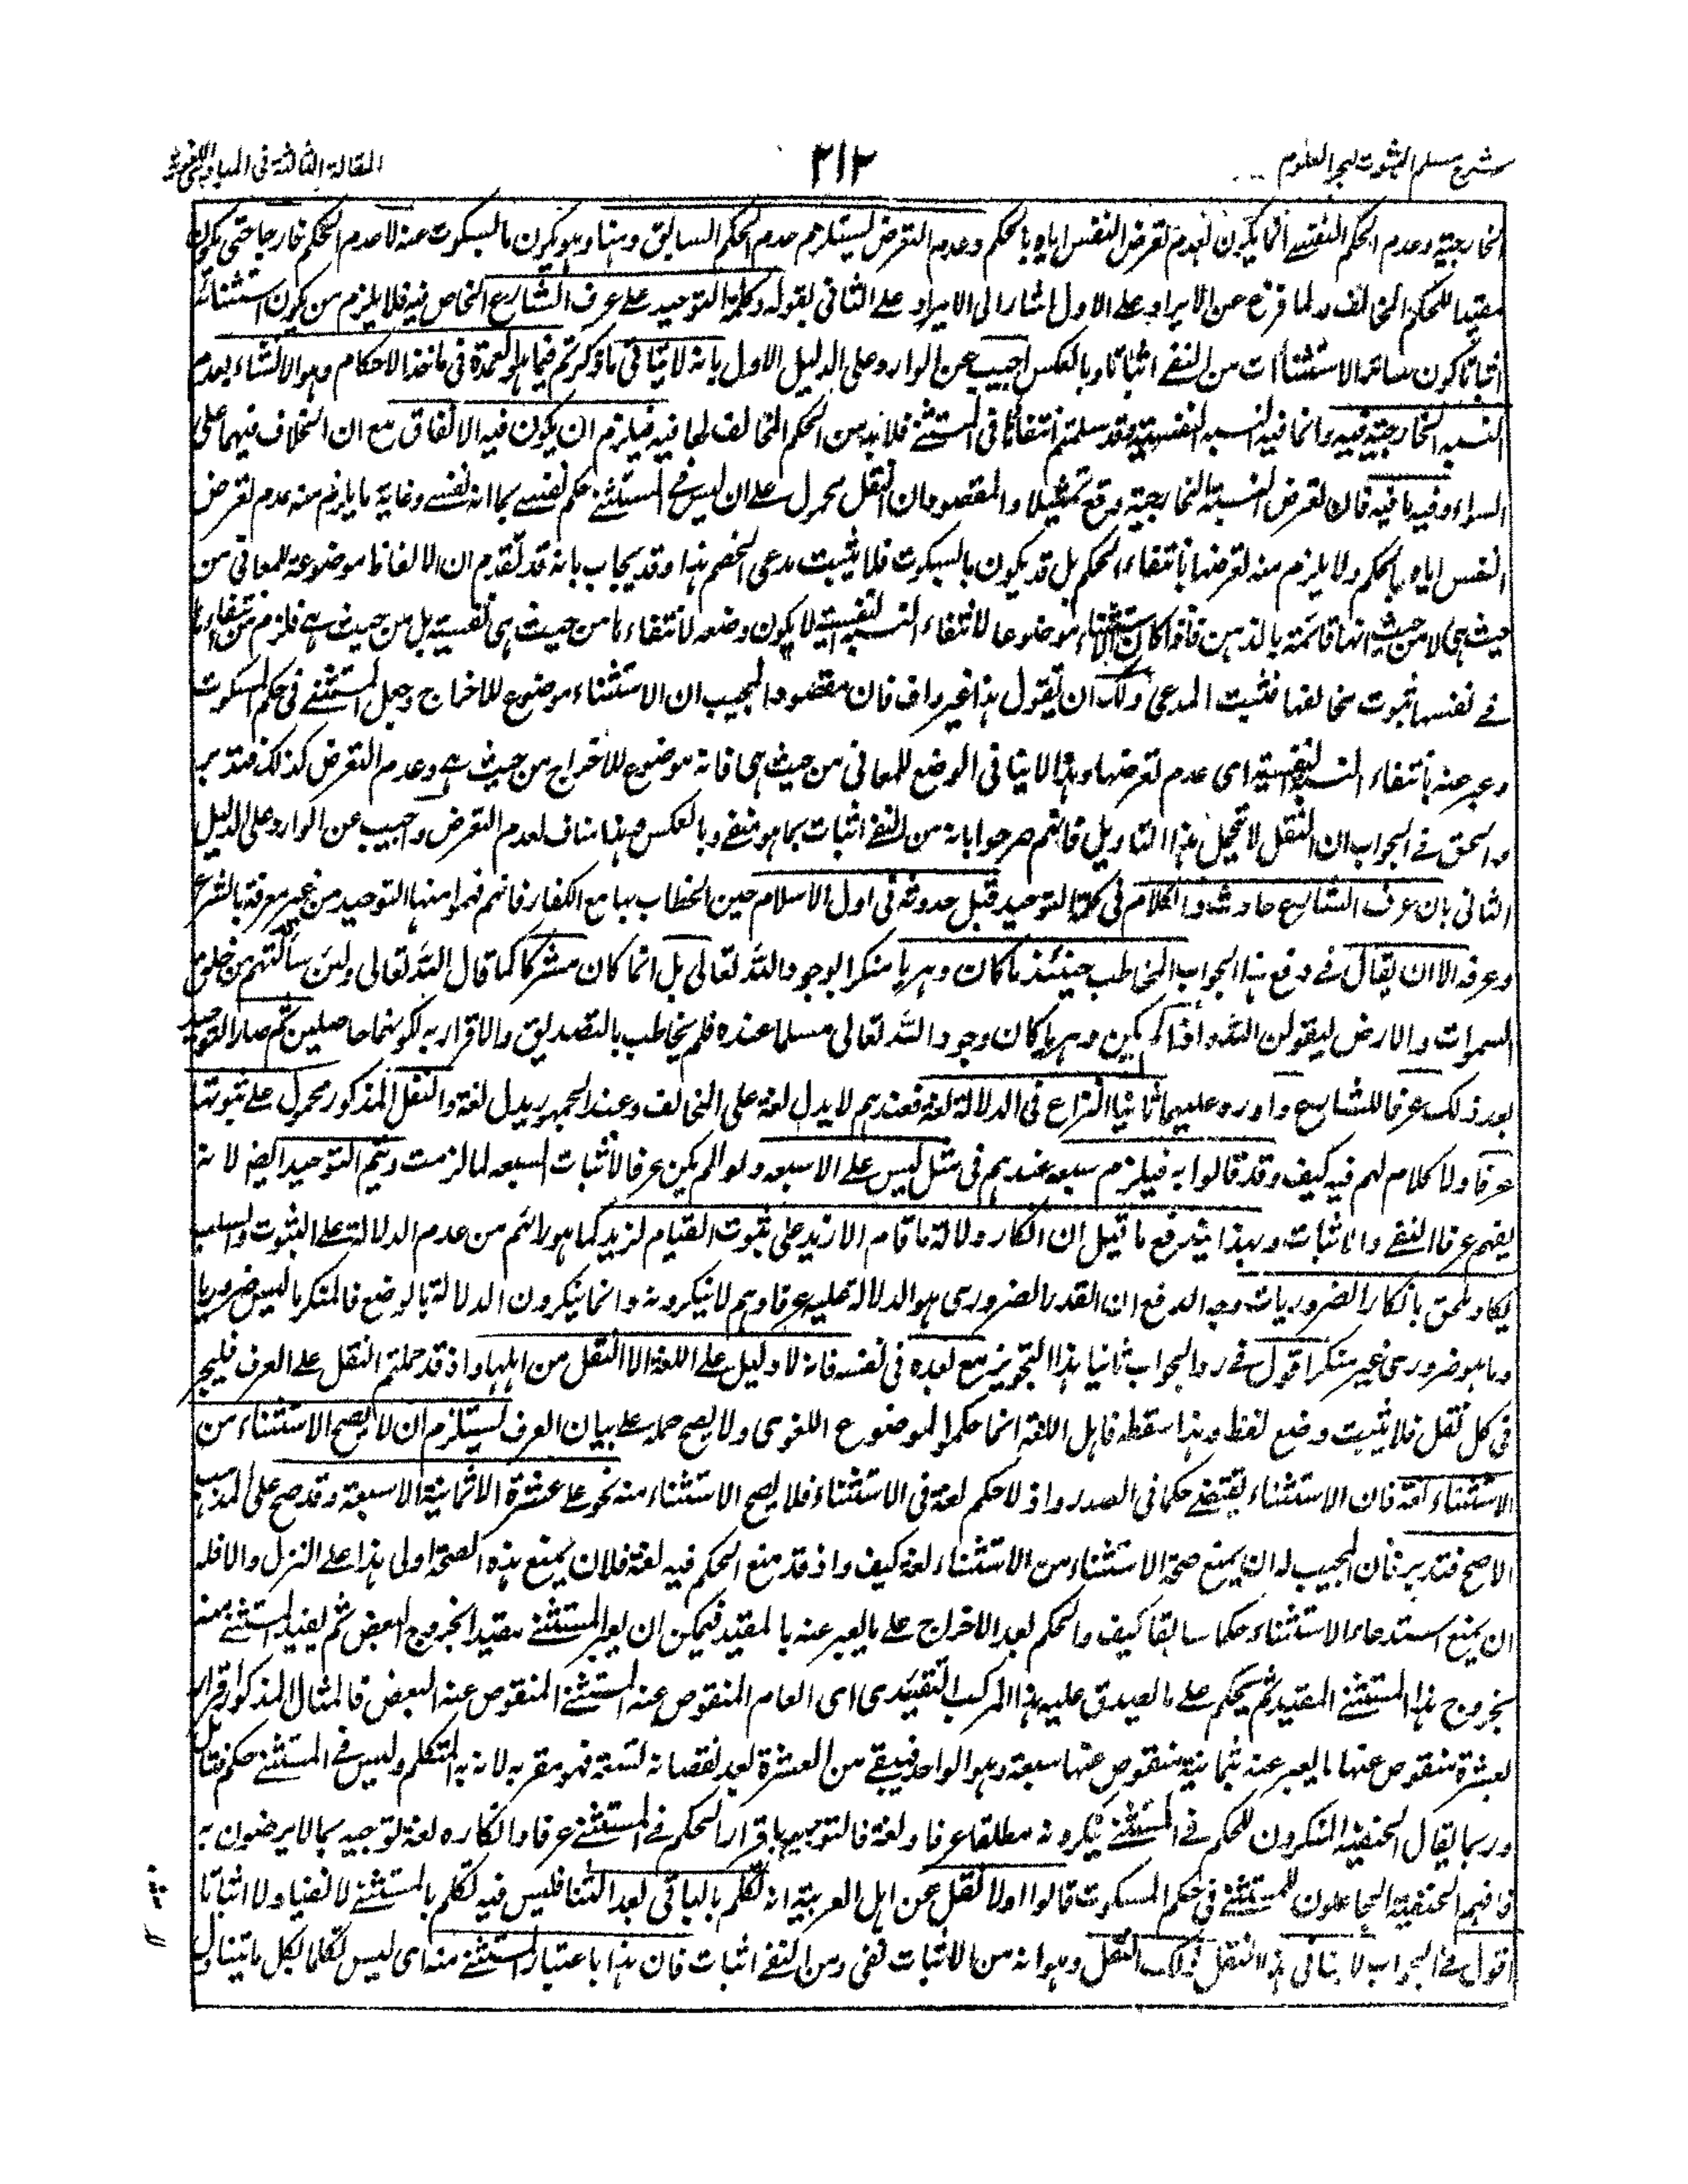 شرح مسلم الثبوت لبحر العلوم
٣١٢
المقالة الثالثة فى المبادى اللغوية
الخارجية وعدم الحكم النفسى انما يكون لعدم تعرض النفس اياه بالحكم وعدم التعرض ليستلزم عدم الحكم السابق وهنا وهو يكون بالسكوت عنه لا عدم الحكم خارجا حتى يكون
مفيدا للحكم المخالف ولما فرغ عن الايراد على الاول اشار الى الايراد على الثانى بقوله وكلمة التوحيد على عرف الشارع الخاص فيه فلا يلزم من كون استثنائه
اثباتا كون سائر الاستثناآت من النفى اثباتا وبالعكس اجيب عن الوارد على الدليل الاول بانه لا يتاتى ما ذكرتم فيما هو العمدة فى ماخذ الاحكام وهو الانشاء لعدم
النسبة الخارجية فيه وانما فيه النسبة النفسية وقد سلمتم انتفائها فى المستثنى فلا بد من الحكم المخالف لها فيه فيلزم ان يكون فيه الاتفاق مع ان الخلاف فيهما على
السواء وفيه ما فيه فان تعرض النسبة الخارجية وقع تمثيلا والمقصود ان النقل محمول على ان ليس فى المستثنى حكم نفسى بما انه نفسى وغاية ما يلزم منه عدم تعرض
النفس اياه بالحكم ولا يلزم منه تعرضها بانتفاء الحكم بل قد يكون بالسكوت فلا يثبت مدعى الخصم هذا وقد يجاب بانه قد تقدم ان الالفاظ موضوعة للمعانى من
حيث هى لا من حيث انها قائمة بالذهن فاذا كان الاستثناء موضوعا لانتفاء النسبة النفسية لا يكون وضعه لانتفاءها من حيث هى نفسية بل من حيث هى فلزم من انتفاءها
فى نفسها ثبوت مخالفها فثبت المدعى ولك ان تقول هذا غير واف فان مقصود المجيب ان الاستثناء موضوع للاخراج وجعل المستثنى فى حكم المسكوت
وعبر عنه بانتفاء النسبة النفسية اى عدم تعرضها وهذا لا ينافى الوضع للمعانى من حيث هى فانه موضوع للاخراج من حيث هى وعدم التعرض كذلك فتدبر
والحق فى الجواب ان النقل لا يحتمل هذا التاويل فانهم صرحوا بانه من النفى اثبات بما هو منفى وبالعكس وهذا مناف لعدم التعرض واجيب عن الوارد على الدليل
الثانى بان عرف الشارع حادث والكلام فى كلمة التوحيد قبل حدوثه فى اول الاسلام حين الخطاب بها مع الكفار فانهم فهموا منها التوحيد من غير معرفة بالشرع
وعرفه الا ان يقال فى دفع هذا الجواب المخاطب حينئذ ما كان دهريا منكرا لوجود الله تعالى بل انما كان مشركا كما قال الله تعالى ولئن سألتهم من خلق
السموات والارض ليقولن الله واذا لم يكن دهريا كان وجود الله تعالى مسلما عنده فلم يخاطب بالتصديق والاقرار به لكونهما حاصلين ثم صار التوحيد
بعد ذلك عرفا للشارع واورد عليهما ثانيا النزاع فى الدلالة لغة فعندهم لا يدل لغة على المخالف وعند الجمهور يدل لغة والنقل المذكور محمول على ثبوتها
عرفا ولا كلام لهم فيه كيف وقد قالوا به فيلزم سبعة عندهم فى مثل ليس على الا سبعة ولو لم يكن عرفا لاثبات السبعة لما لزمت ويتم التوحيد ايضا لانه
يفهم عرفا النفى والاثبات وبهذا يندفع ما قيل ان انكار دلالة ما قام الا زيد على ثبوت القيام لزيد كما هو لازم من عدم الدلالة على الثبوت والسلب
يكاد يلحق بانكار الضروريات وجه الدفع ان القدر الضرورى هو الدلالة عليه عرفا وهم لا ينكرونه وانما ينكرون الدلالة بالوضع فالمنكر ليس ضروريا
وما هو ضرورى غير منكر اقول فى رد الجواب ثانيا هذا التجويز مع بعده فى نفسه فانه لا دليل على اللغة الا النقل من اهلها واذ قد حملتم النقل على العرف فليجر
فى كل نقل فلا يثبت وضع لفظ وهذا سفسطة فاهل اللغة انما حكموا لموضوع اللغوى ولا يصح حمله على بيان العرف ليستلزم ان لا يصح الاستثناء من
الاستثناء لغة فان الاستثناء يقتضى حكما فى الصدر واذ لا حكم لغة فى الاستثناء فلا يصح الاستثناء منه نحو على عشرة الا ثمانية الا سبعة وقد صح على المذهب
الاصح فتدبر فان المجيب له ان يمنع صحة الاستثناء من الاستثناء لغة كيف واذ قد منع الحكم فيه لغة فلان يمنع هذه الصحة اولى هذا على التنزل والا فله
ان يمنع استدعاء الاستثناء حكما سابقا كيف والحكم بعد الاخراج على ما يعبر عنه بالمقيد فيمكن ان يعبر المستثنى مقيدا بخروج البعض ثم يفيد المستثنى منه
بخروج هذا المستثنى المقيد ثم يحكم على ما يصدق عليه هذا المركب التقييدى اى العام المنقوص عنه المستثنى المنقوص عنه البعض فالمثال المذكور اقرار
لعشرة منقوص عنها ما يعبر عنه بثمانية منقوص عنها سبعة وهو الواحد فيبقى من العشرة بعد نقصانه تسعة فهو مقر به لانه به التكلم وليس فى المستثنى حكم فتامل
وربما يقال الحنفية المنكرون للحكم فى المستثنى ينكرونه مطلقا عرفا ولغة فالتوجيه باقرار الحكم فى المستثنى عرفا وانكاره لغة توجيه بما لا يرضون به
فافهم الحنفية الجاعلون للمستثنى فى حكم المسكوت قالوا اولا نقل عن اهل العربية انه تكلم بالباقى بعد الثنا فليس فيه تكلم بالمستثنى لا نفيا ولا اثباتا
اقول فى الجواب لا ينافى هذا النقل ذلك النقل وهو انه من الاثبات نفى ومن النفى اثبات فان هذا باعتبار المستثنى منه اى ليس تكلما لكل ما يتناول